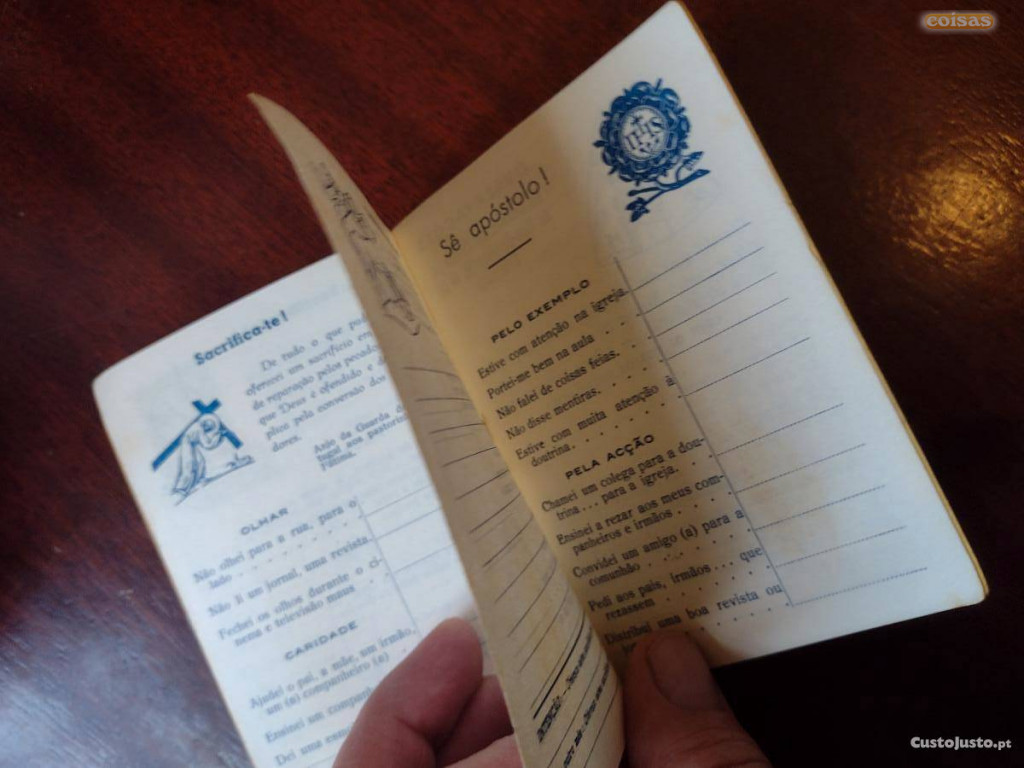 coisas
Sacrifica-te!
De tudo o que
oferecei um sacrifício
de reparação pelos
que Deus é ofendido e
plica pela conversão dos
dores.
Anjo da Guarda
tugal aos
Fátima.
OLHAR
Não olhei para a rua, para o
lado . . . . . . .
Não li um jornal, uma revista
Fechei os olhos durante o ci-
nema e televisão maus
CARIDADE
Ajudei o pai, a mãe, um irmão,
um (a) companheiro (a) . .
Ensinei um
Dei uma
Sê apóstolo!
IHS
PELO EXEMPLO
Estive com atenção na igreja.
Portei-me bem na aula . . .
Não falei de coisas feias. . .
Não disse mentiras. . . . .
Estive com muita atenção à
doutrina. . . . . . .
PELA ACÇÃO
Chamei um colega para a dou-
trina... para a igreja. . .
Ensinei a rezar aos meus com-
panheiros e irmãos . . .
Convidei um amigo (a) para a
comunhão . . . . . .
Pedi aos pais, irmãos... que
rezassem . . . . . .
Distribuí uma boa revista ou
CustoJusto.pt